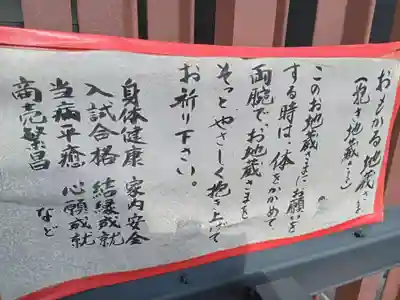 おもかる地蔵さま
(抱き地蔵さま)
このお地蔵さまにお願いを
する時は、体をかがめて
両腕でお地蔵さまを
そっとやさしく抱き上げて
お祈り下さい。
身体健康 家内安全
入試合格 結縁成就
当病平癒 心願成就
商売繁昌 など